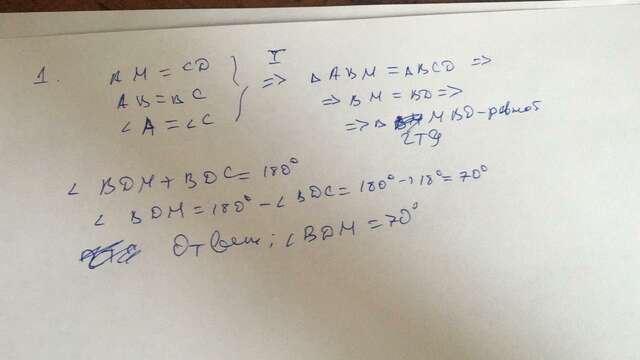 1. AM = CD } I => ΔABM = ΔBCD =>
AB = BC => BM = BD =>
∠A = ∠C => Δ MBD - равноб
ЧТД
∠ BDM + BDC = 180°
∠ BDM = 180° - ∠BDC = 180° - 118° = 70°
Ответ: ∠BDM = 70°